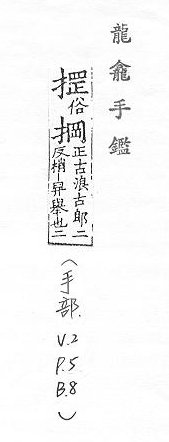 龍龕手鑑
俗掆正古浪古郎二
反捎—舁舉也二
（手部. V.2 P.5 B.8）